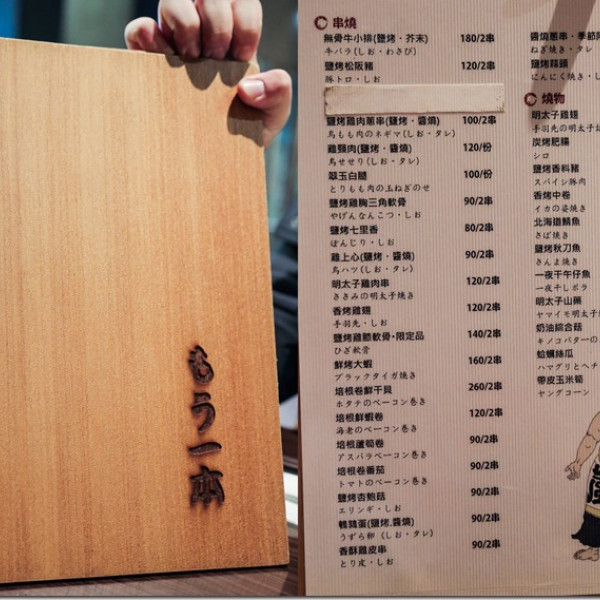 もう一本
串燒
無骨牛小排(鹽烤・芥末) 180/2串
牛バラ(しお・わさび)
鹽烤松阪豬 120/2串
豚トロ・しお
鹽烤雞肉蔥串(鹽烤・醬燒) 100/2串
鳥もも肉のネギマ(しお・タレ)
雞頸肉(鹽烤・醬燒) 120/份
鳥せせり(しお・タレ)
翠玉白腿 100/份
とりもも肉の玉ねぎのせ
鹽烤雞胸三角軟骨 90/2串
やげんなんこつ・しお
鹽烤七里香 80/2串
ぼんじり・しお
雞上心(鹽烤・醬燒) 90/2串
鳥ハツ(しお・タレ)
明太子雞肉串 120/2串
ささみの明太子焼き
香烤雞翅 120/2串
手羽先・しお
鹽烤雞膝軟骨・限定品 140/2串
ひざ軟骨
鮮烤大蝦 160/2串
ブラックタイガ焼き
培根卷鮮干貝 260/2串
ホタテのベーコン巻き
培根鮮蝦卷 120/2串
海老のベーコン巻き
培根蘆筍卷 90/2串
アスパラベーコン巻き
培根卷番茄 90/2串
トマトのベーコン巻き
鹽烤杏鮑菇 90/2串
エリンギ・しお
鵪鶉蛋(鹽烤.醬燒) 90/2串
うずら卵(しお・タレ)
香酥雞皮串 90/2串
とり皮・しお
醬燒蔥串・季節限
ねぎ焼き・タレ
鹽烤蒜頭
にんにく焼き・し
燒物
明太子雞翅
手羽先の明太子
炭烤肥腸
シロ
鹽烤香料豬
スパイシ豚肉
香烤中卷
イカの姿焼き
北海道鯖魚
さば焼き
鹽烤秋刀魚
さんま焼き
一夜干午仔魚
一夜干しボラ
明太子山藥
ヤマイモ明太子
奶油綜合菇
キノコバターの
蛤蠣絲瓜
ハマグリとヘチ
帶皮玉米筍
ヤングコーン